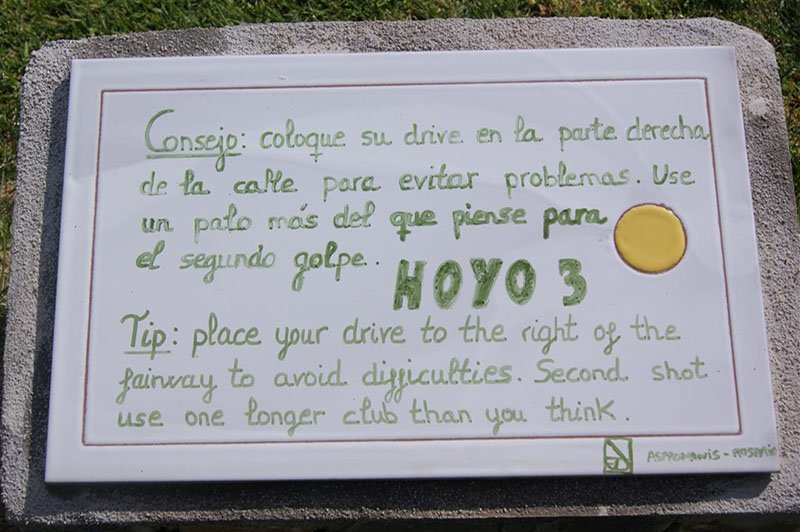 Consejo: coloque su drive en la parte derecha
de la calle para evitar problemas. Use
un palo más del que piense para
el segundo golpe.
HOYO 3
Tip: place your drive to the right of the
fairway to avoid difficulties. Second shot
use one longer club than you think.
ASPROMANIS -